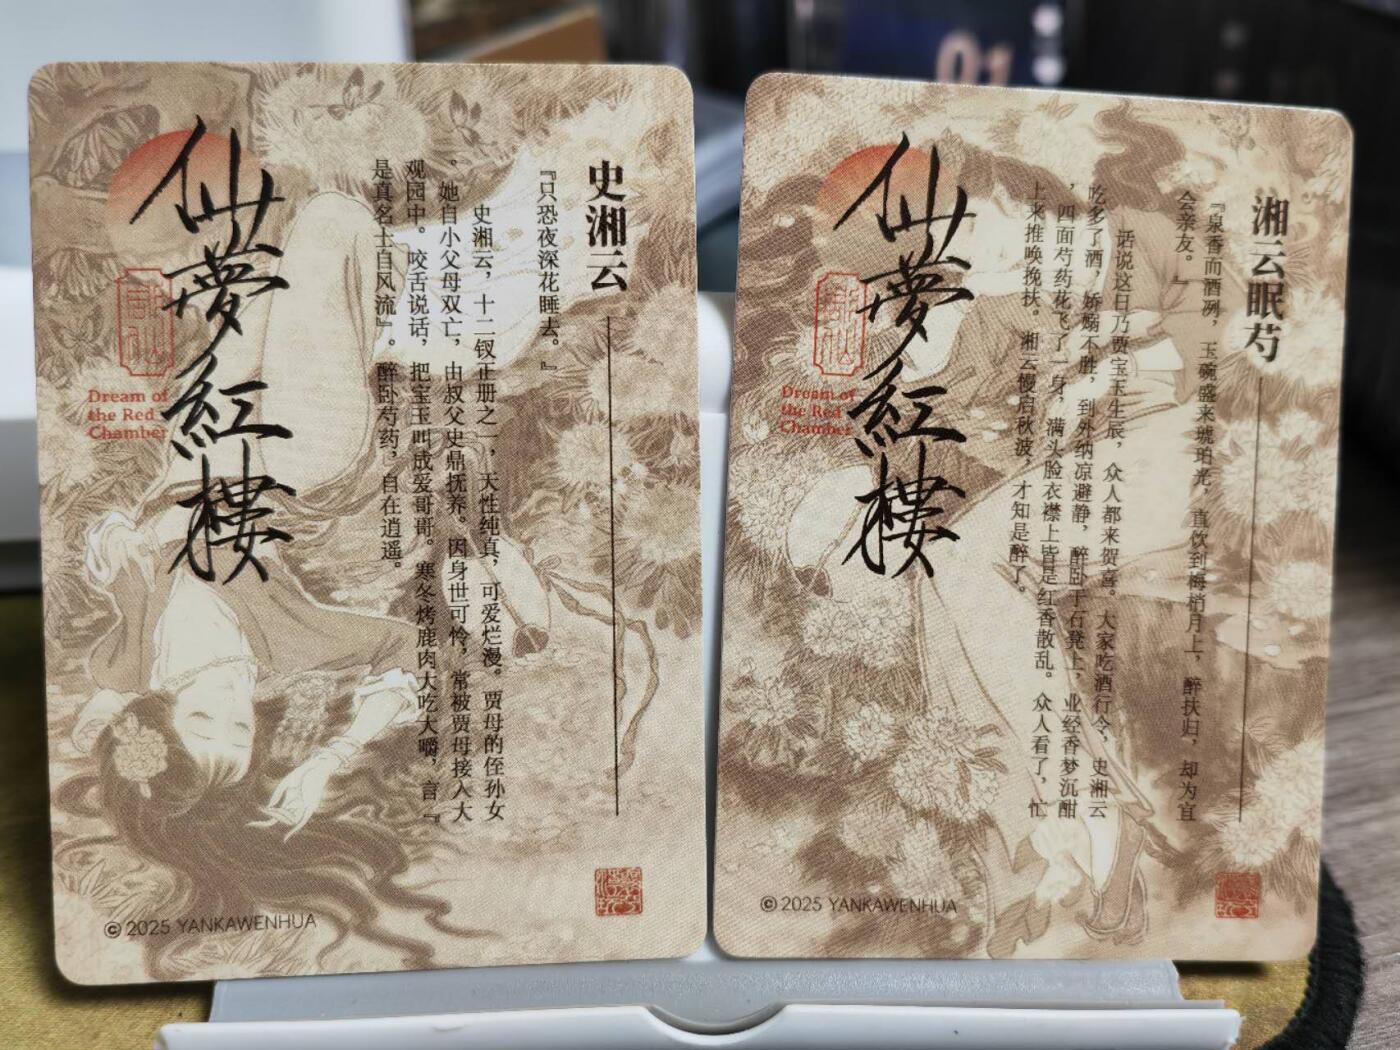 史湘云
『只恐夜深花睡去。』
史湘云，十二钗正册之一，天性纯真，可爱烂漫。贾母的侄孙女
。她自小父母双亡，由叔父史鼎抚养。因身世可怜，常被贾母接入大
观园中。咬舌说话，把宝玉叫成爱哥哥。寒冬烤鹿肉大吃大嚼，言『
是真名士自风流』。醉卧芍药，自在逍遥。
仙夢紅樓
Dream of
the Red
Chamber
© 2025 YANKAWENHUA
湘云眠芍
『泉香而酒冽，玉碗盛来琥珀光，直饮到梅梢月上，醉扶归，却为宜
会亲友。』
话说这日乃贾宝玉生辰，众人都来贺喜。大家吃酒行令，史湘云
吃多了酒，娇嫋不胜，到外纳凉避静，醉卧于石凳上，业经香梦沉酣
，四面芍药花飞了一身，满头脸衣襟上皆是红香散乱。众人看了，忙
上来推唤挽扶。湘云慢启秋波，才知是醉了。
仙夢紅樓
Dream of
the Red
Chamber
© 2025 YANKAWENHUA